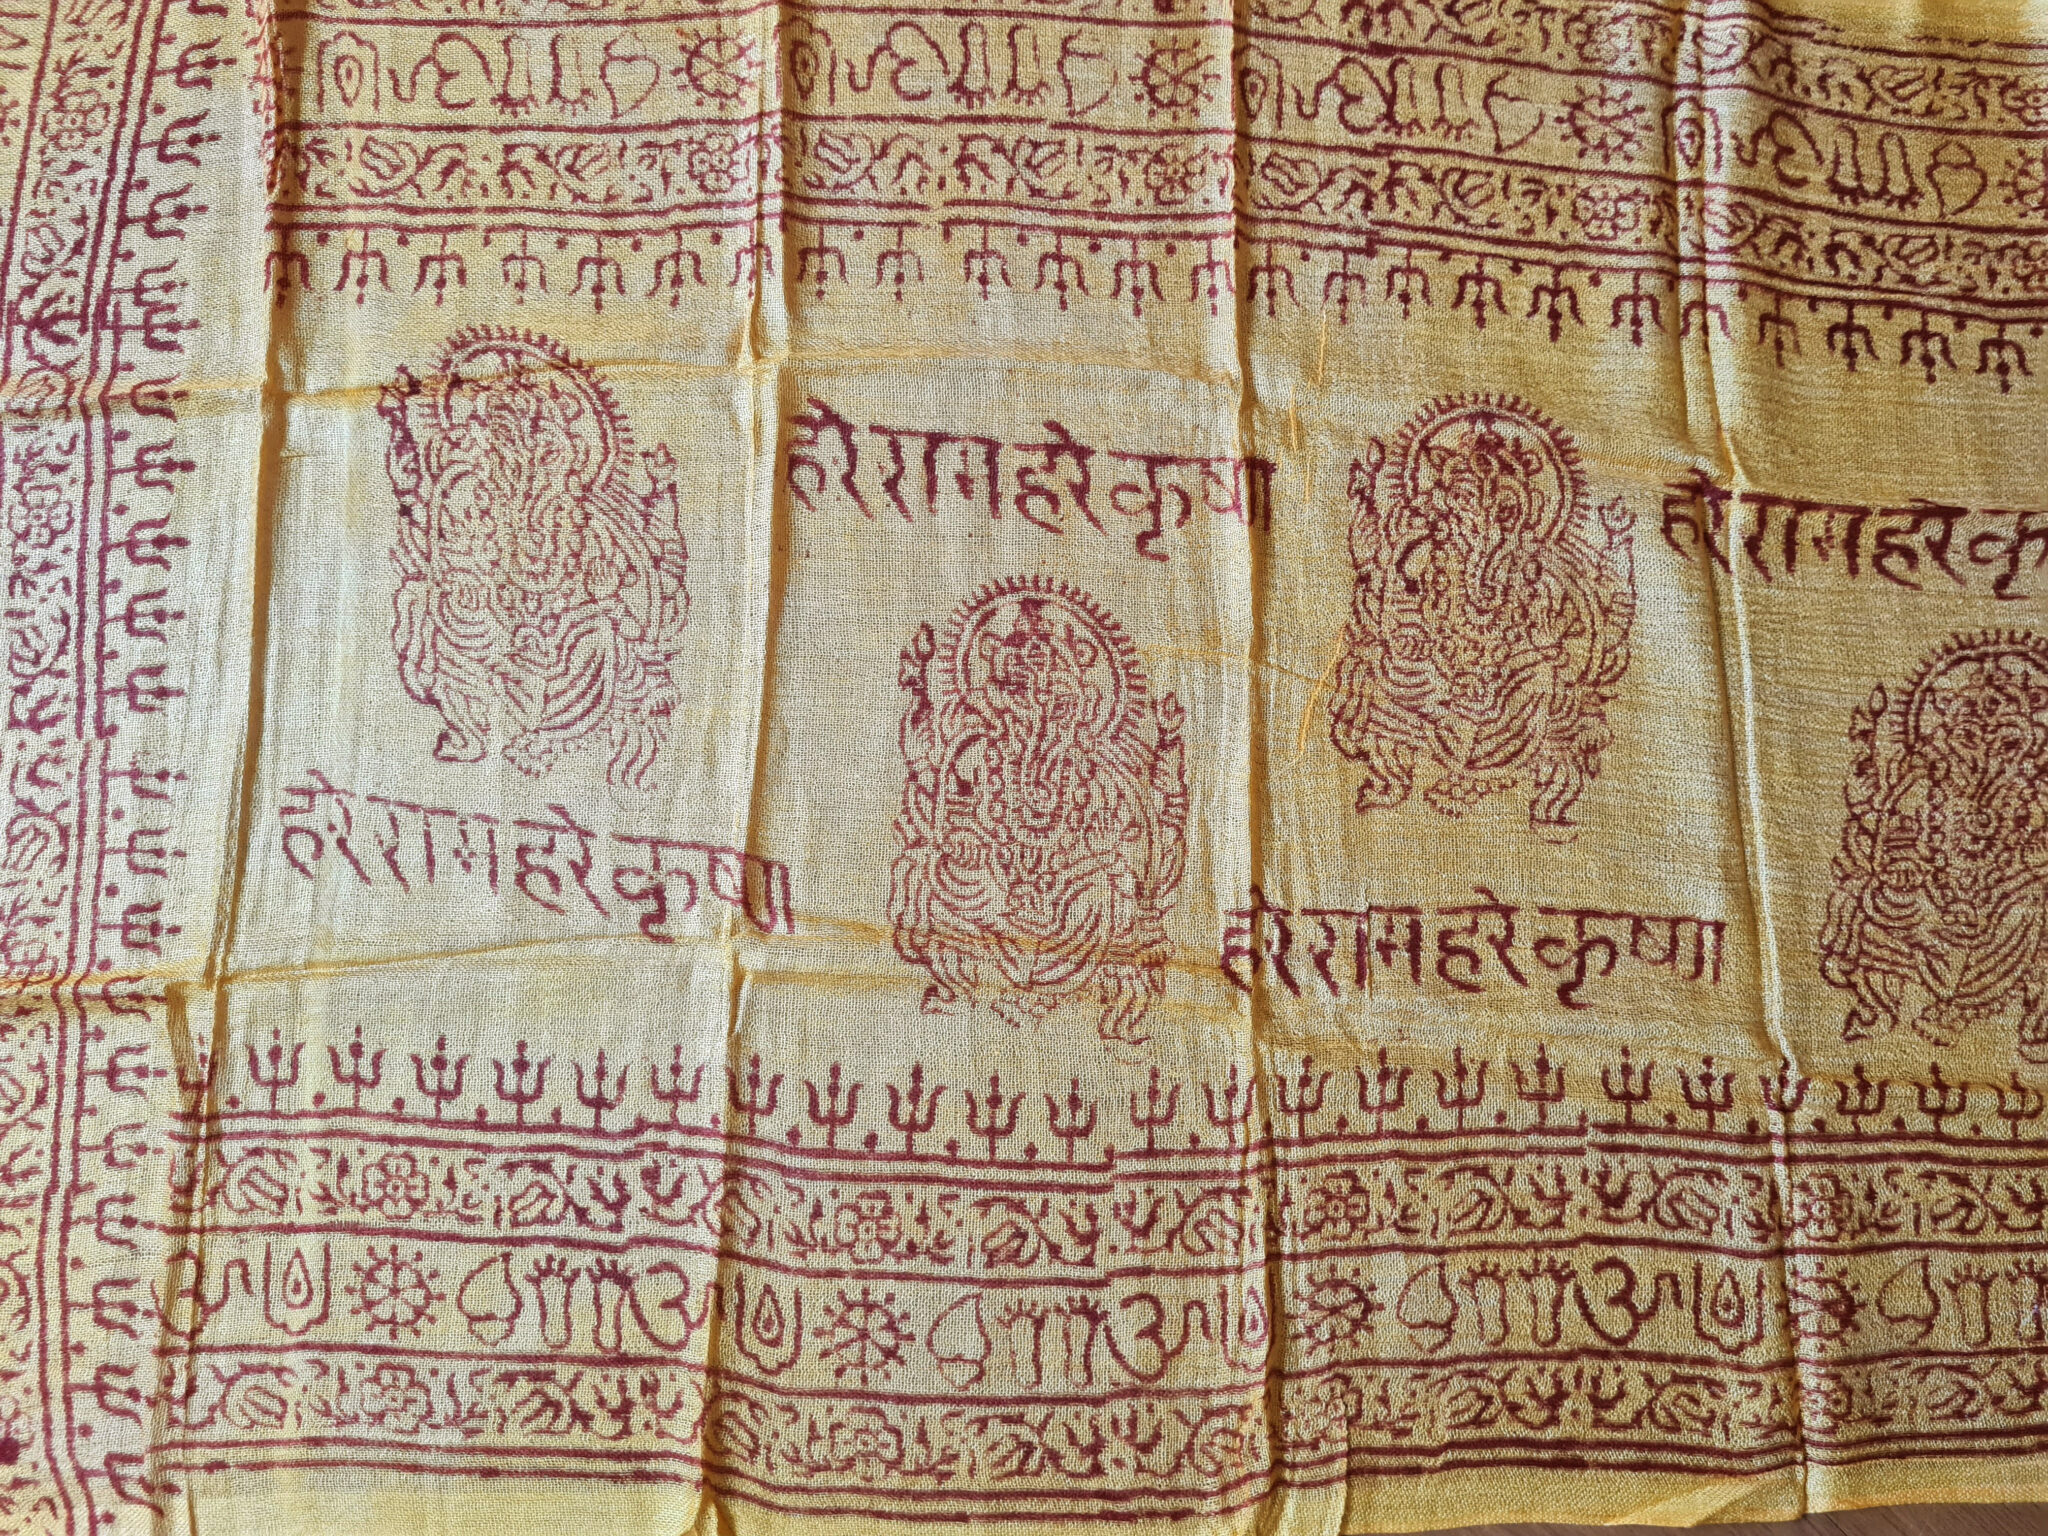 हरे राम हरे कृष्णा
हरे राम हरे कृ
हरे राम हरे कृष्णा
हरे राम हरे कृष्णा